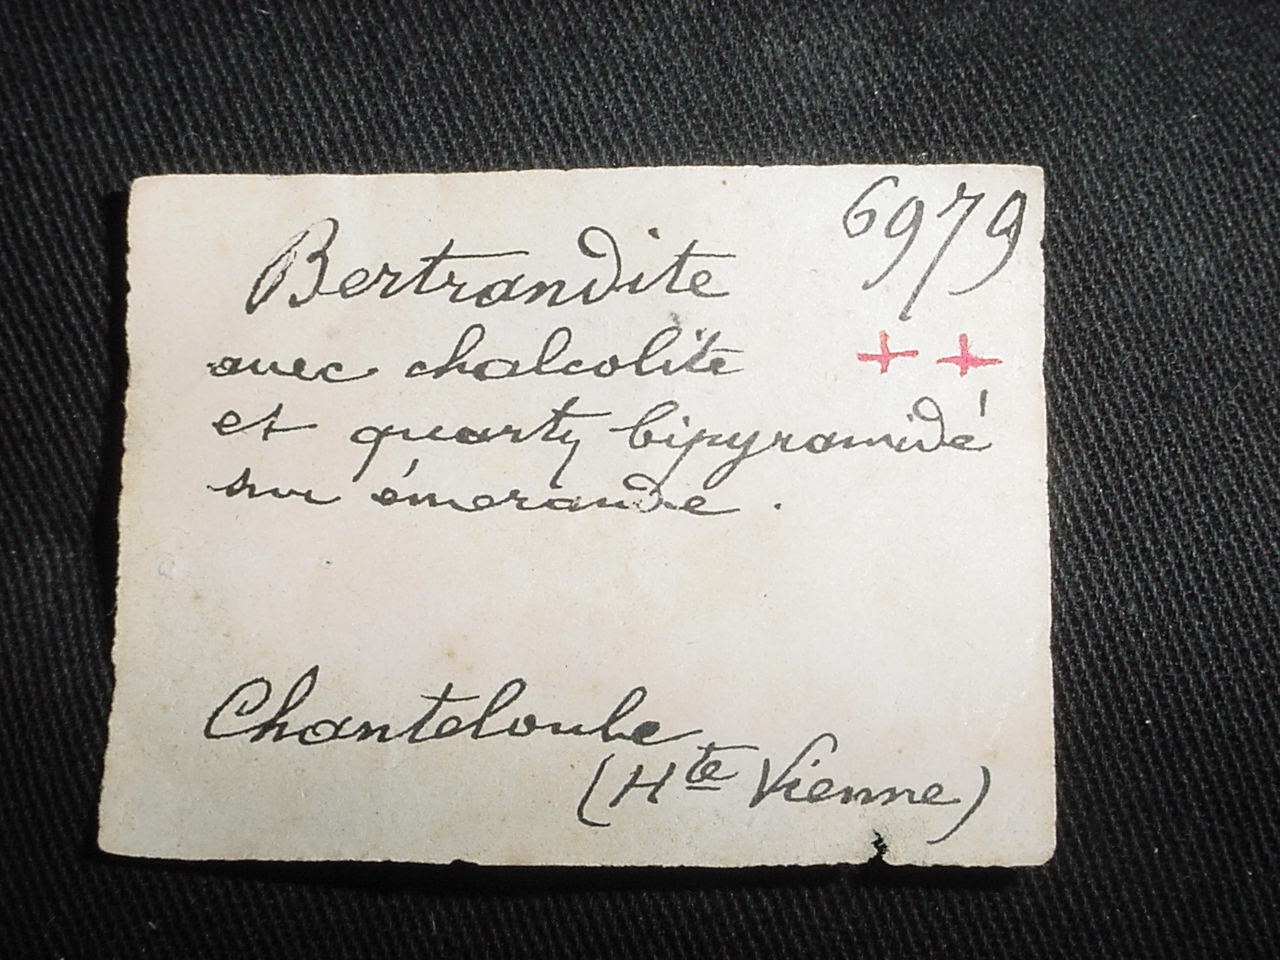 6979
Bertrandite
avec chalcolite ++
et quartz bipyramidé
sur émeraude.
Chanteloube
(Hte Vienne)